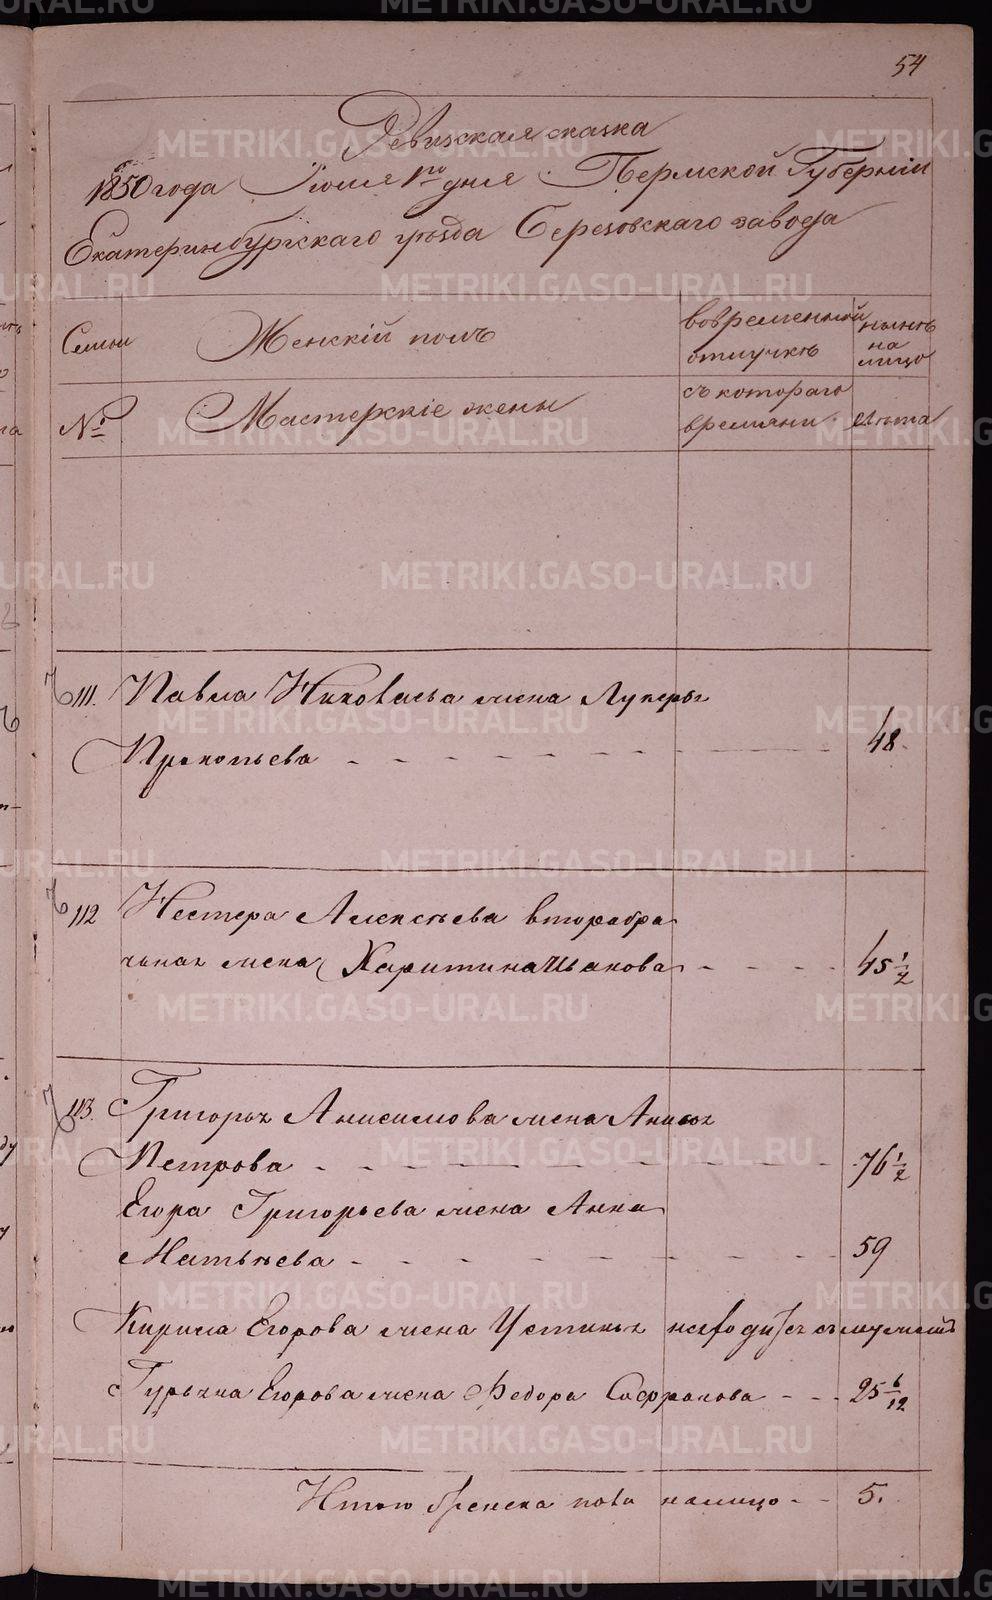 54
Ревизская сказка
1850 года Іюля 1го дня Пермской Губерніи
Екатеринбургскаго уѣзда Березовскаго завода
Семьи Женскій полъ вовременной отлучкѣ нынѣ на лицо
№ Мастерскіе жены съ котораго времяни лѣта
111. Павла Николаева жена Лукерья
Прокопьева 48.
112 Нестера Алексѣева вторабра
чьная жена Харитина Иванова 45 1/2
113. Григорья Анисимова жена Анисья
Петрова 76 1/2
Егора Григорьева жена Анна
Матвѣева 59
Кирила Егорова жена Устинья находится съ мужемъ
Гурьяна Егорова жена Федора Сафронова 25 6/12
Итого женска пола налицо 5.
METRIKI.GASO-URAL.RU